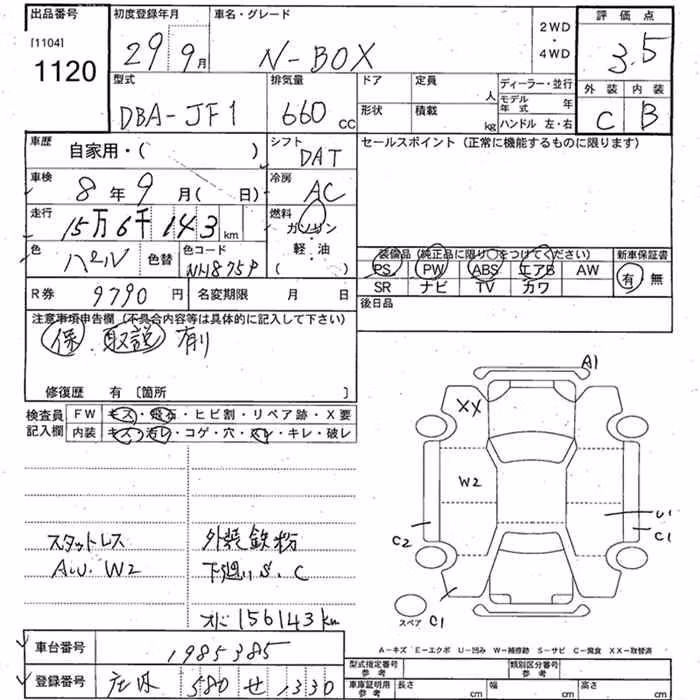 出品番号 初度登録年月 車名・グレード 2WD・4WD 評価点
[1104]
1120 29 9月 N-BOX 3.5
型式 排気量 ドア 定員 人 ディーラー・並行 外装 内装
DBA-JF1 660cc 形状 積載 kg モデル年式 年 C B
ハンドル 左・右
車歴 自家用・( ) シフト DAT セールスポイント (正常に機能するものに限ります)
車検 8年9月( 日) 冷房 AC
走行 15万6千143km 燃料 ガソリン・軽・油 ( )
色 パール 色替 色コード NH875P
装備品 (純正品に限り○をつけてください) 新車保証書
PS PW ABS エアB AW 有・無
SR ナビ TV カワ
R券 9790円 名変期限 月 日 後日品
注意事項申告欄 (不具合内容等は具体的に記入して下さい)
保 取説 有り
修復歴 有 [箇所 ]
検査員記入欄 FW キズ・飛石・ヒビ割・リペア跡・X要
内装 キズ・汚レ・コゲ・穴・スレ・キレ・破レ
A1
XX
W2
U1
C2 C1
C1
スペア
スタットレス 外装鉄粉
A.U. W2 下廻りS.C
オド156143km
A-キズ E-エクボ U-凹み W-補修跡 S-サビ C-腐食 XX-取替済
車台番号 1985385
登録番号 580 せ 1330
型式指定番号 参考 類別区分番号 参考
車庫証明用 参考 長さ cm 幅 cm 高さ cm